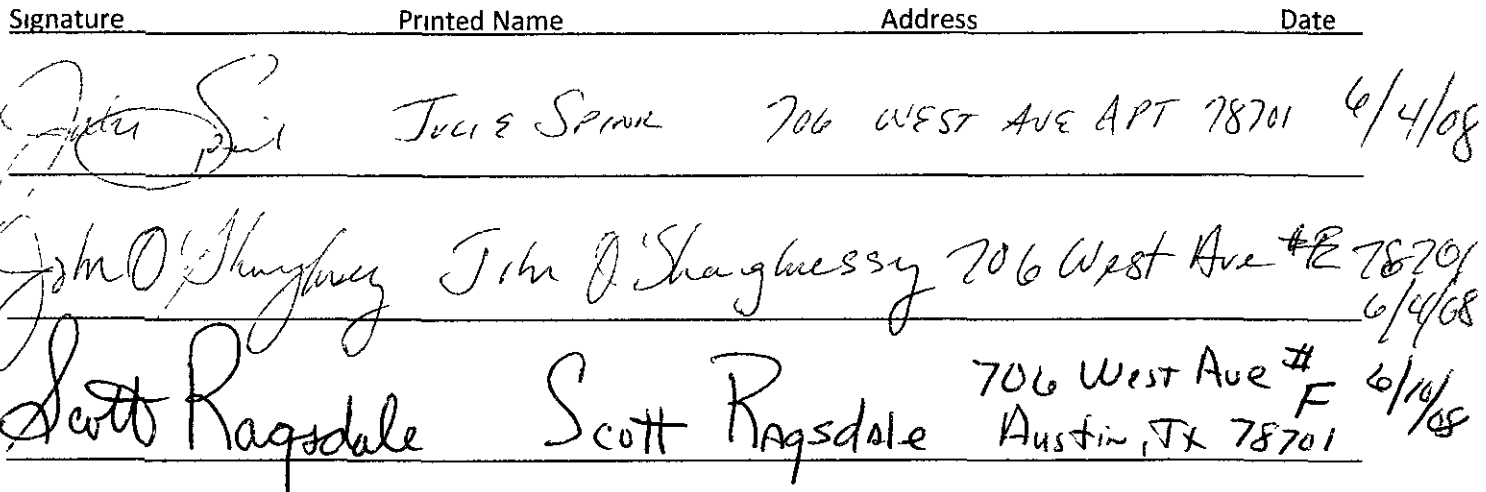 Signature Printed Name Address Date
Julie Spink JULIE SPINK 706 WEST AVE APT 78701 6/4/08
John O'Shaughnessy John O'Shaghnessy 706 West Ave #E 78701
6/4/08
Scott Ragsdale Scott Ragsdale 706 West Ave # F 6/10/08
Austin, TX 78701